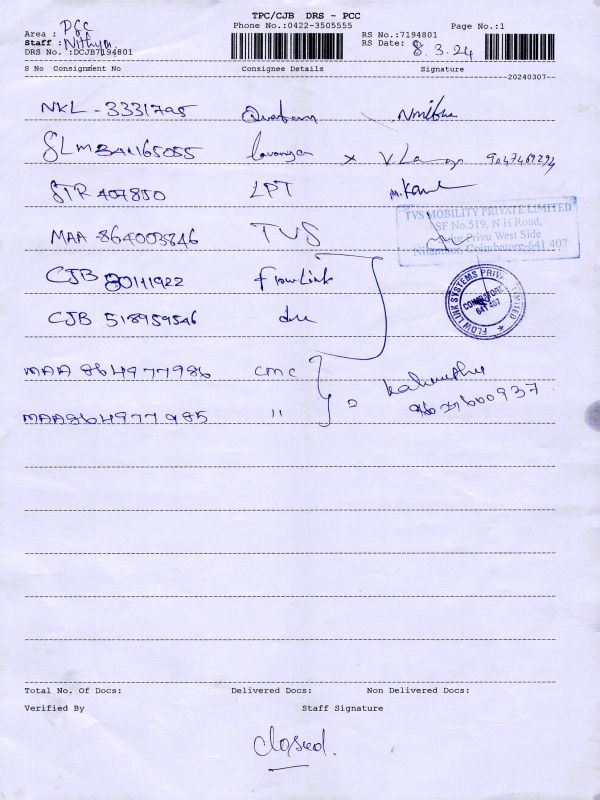 TPC/CJB DRS - PCC
Area : PCC
Phone No.:0422-3505555
Page No.:1
Staff : Nithya
RS No.:7194801
DRS No. :DCJB7194801
RS Date: 8.3.24
S No Consignment No Consignee Details Signature
20240307
NKL - 3331795
SLM 341165055 x V. 9047469294
STR 407850 LPT M.
MAA 864003846 TVS
TVS MOBILITY PRIVATE LIMITED
SF No.519, N H Road,
Privu West Side
Nilambur, Coimbatore-641 407
CJB 80111922 FlowLink
FLOW LINK SYSTEMS PRIVATE LIMITED
COIMBATORE
641 407
CJB 518959546
MAA 864977986 CMC
MAA864977985 "
Total No. Of Docs: Delivered Docs: Non Delivered Docs:
Verified By Staff Signature
Closed.